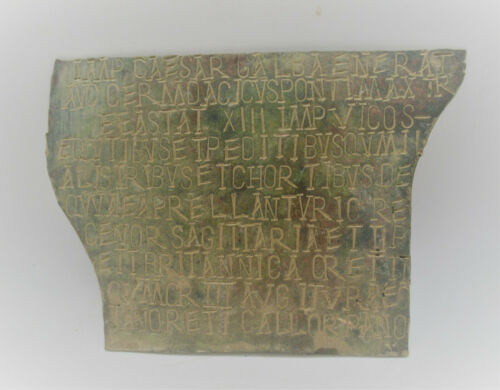 IMP CAESAR GALBAENERAT
AVD GERMOACICVSPONTIMAXTR
ETASTAT XIII IMP VICOS
EQITIBVSETPEDITIBVSQVMIL
ALISTRIBVSETCHORTIBVSDE
QVVAEXPRELLANTVRICRE
CENORSAGITTARIAETIP
ETIIBRITANNICA CRETII
QVMORITI AVG ITVRAEO
ETI CALLORPANO